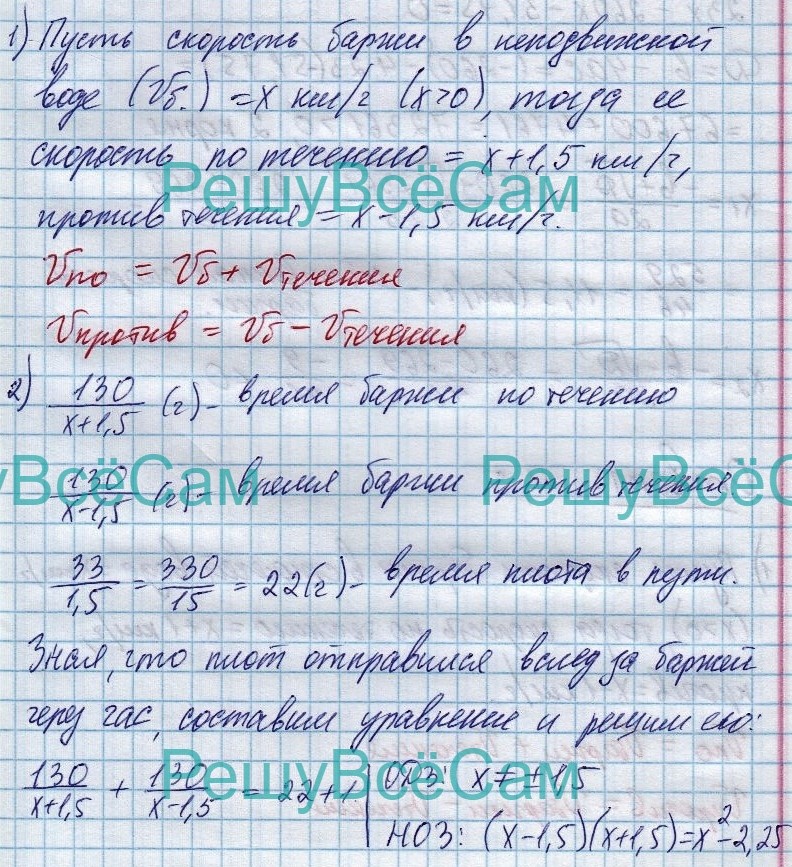 1) Пусть скорость баржи в неподвижной
воде (Vб.) = x км/ч (x>0), тогда ее
скорость по течению = x+1,5 км/ч,
РешуВсёСам
против течения = x-1,5 км/ч.
Vпо = Vб + Vтечения
Vпротив = Vб - Vтечения
2) 130/(x+1,5) (ч) - время баржи по течению
РешуВсёСам РешуВсёСам
130/(x-1,5) (ч) - время баржи против течения
33/1,5 = 330/15 = 22 (ч) - время плота в пути.
Зная, что плот отправился вслед за баржей
через час, составим уравнение и решим его:
РешуВсёСам
130/(x+1,5) + 130/(x-1,5) = 22+1 | ОДЗ: x ≠ ±1,5
НОЗ: (x-1,5)(x+1,5)=x²-2,25